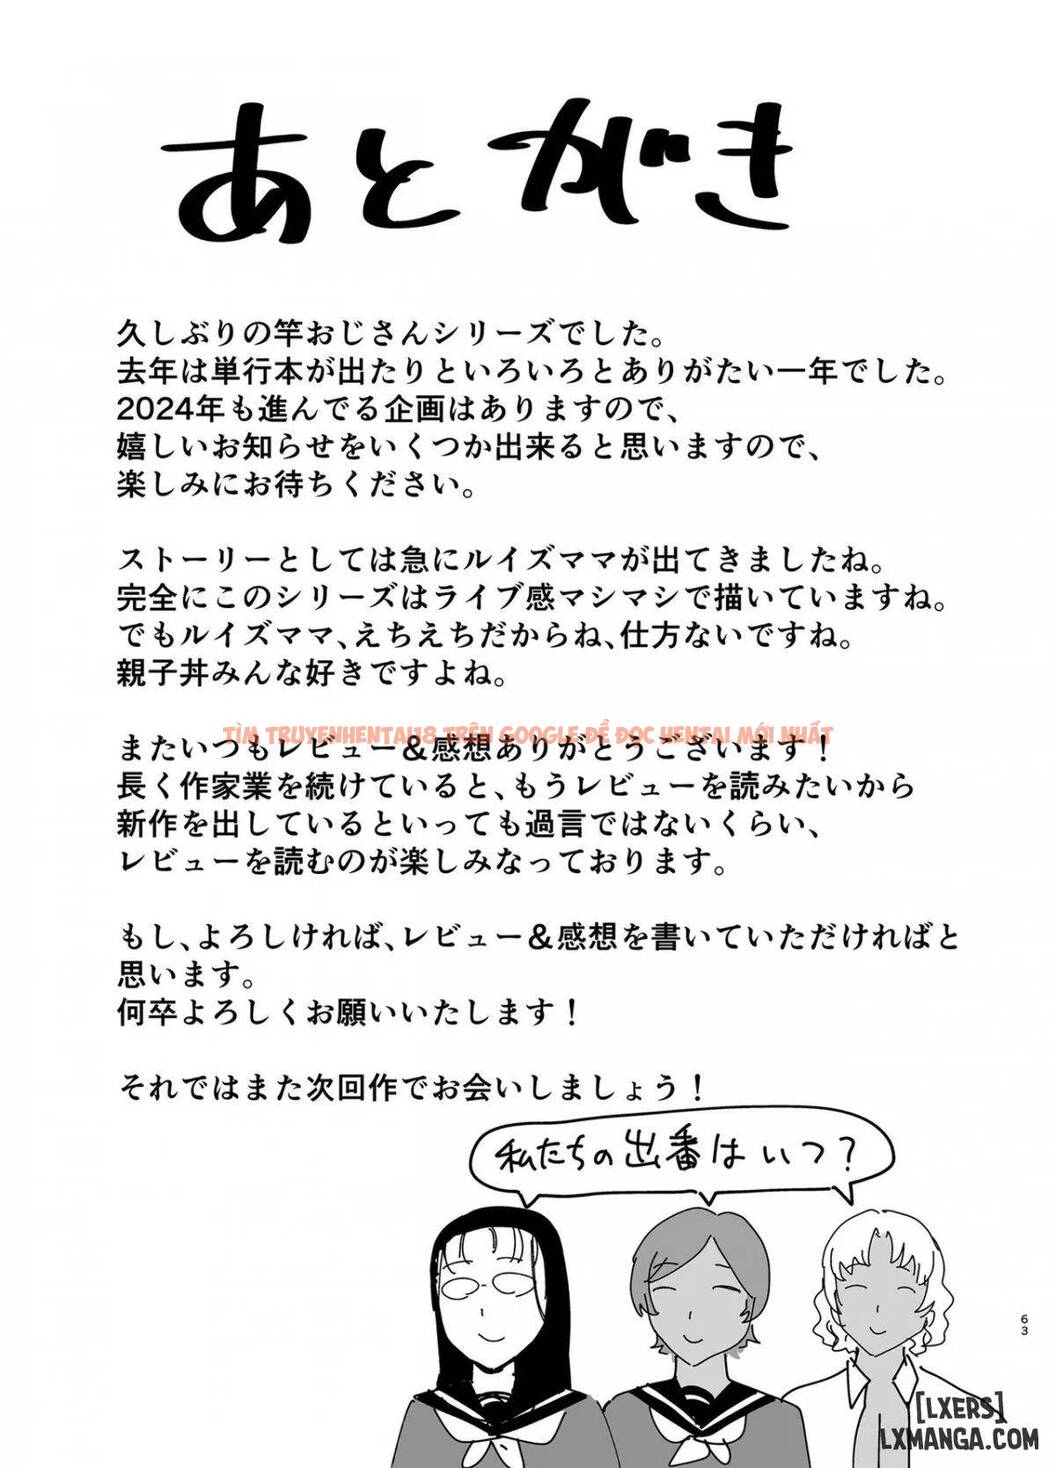 あとがき
久しぶりの竿おじさんシリーズでした。
去年は単行本が出たりといろいろとありがたい一年でした。
2024年も進んでる企画はありますので、
嬉しいお知らせをいくつか出来ると思いますので、
楽しみにお待ちください。
ストーリーとしては急にルイズママが出てきましたね。
完全にこのシリーズはライブ感マシマシで描いていますね。
でもルイズママ、えちえちだからね、仕方ないですね。
親子丼みんな好きですよね。
TÌM TRUYENHENTAI18 TRÊN GOOGLE ĐỂ ĐỌC HENTAI MỚI NHẤT
またいつもレビュー＆感想ありがとうございます！
長く作家業を続けていると、もうレビューを読みたいから
新作を出しているといっても過言ではないくらい、
レビューを読むのが楽しみなっております。
もし、よろしければ、レビュー＆感想を書いていただければと
思います。
何卒よろしくお願いいたします！
それではまた次回作でお会いしましょう！
私たちの出番はいつ？
63
[LXERS]
LXMANGA.COM